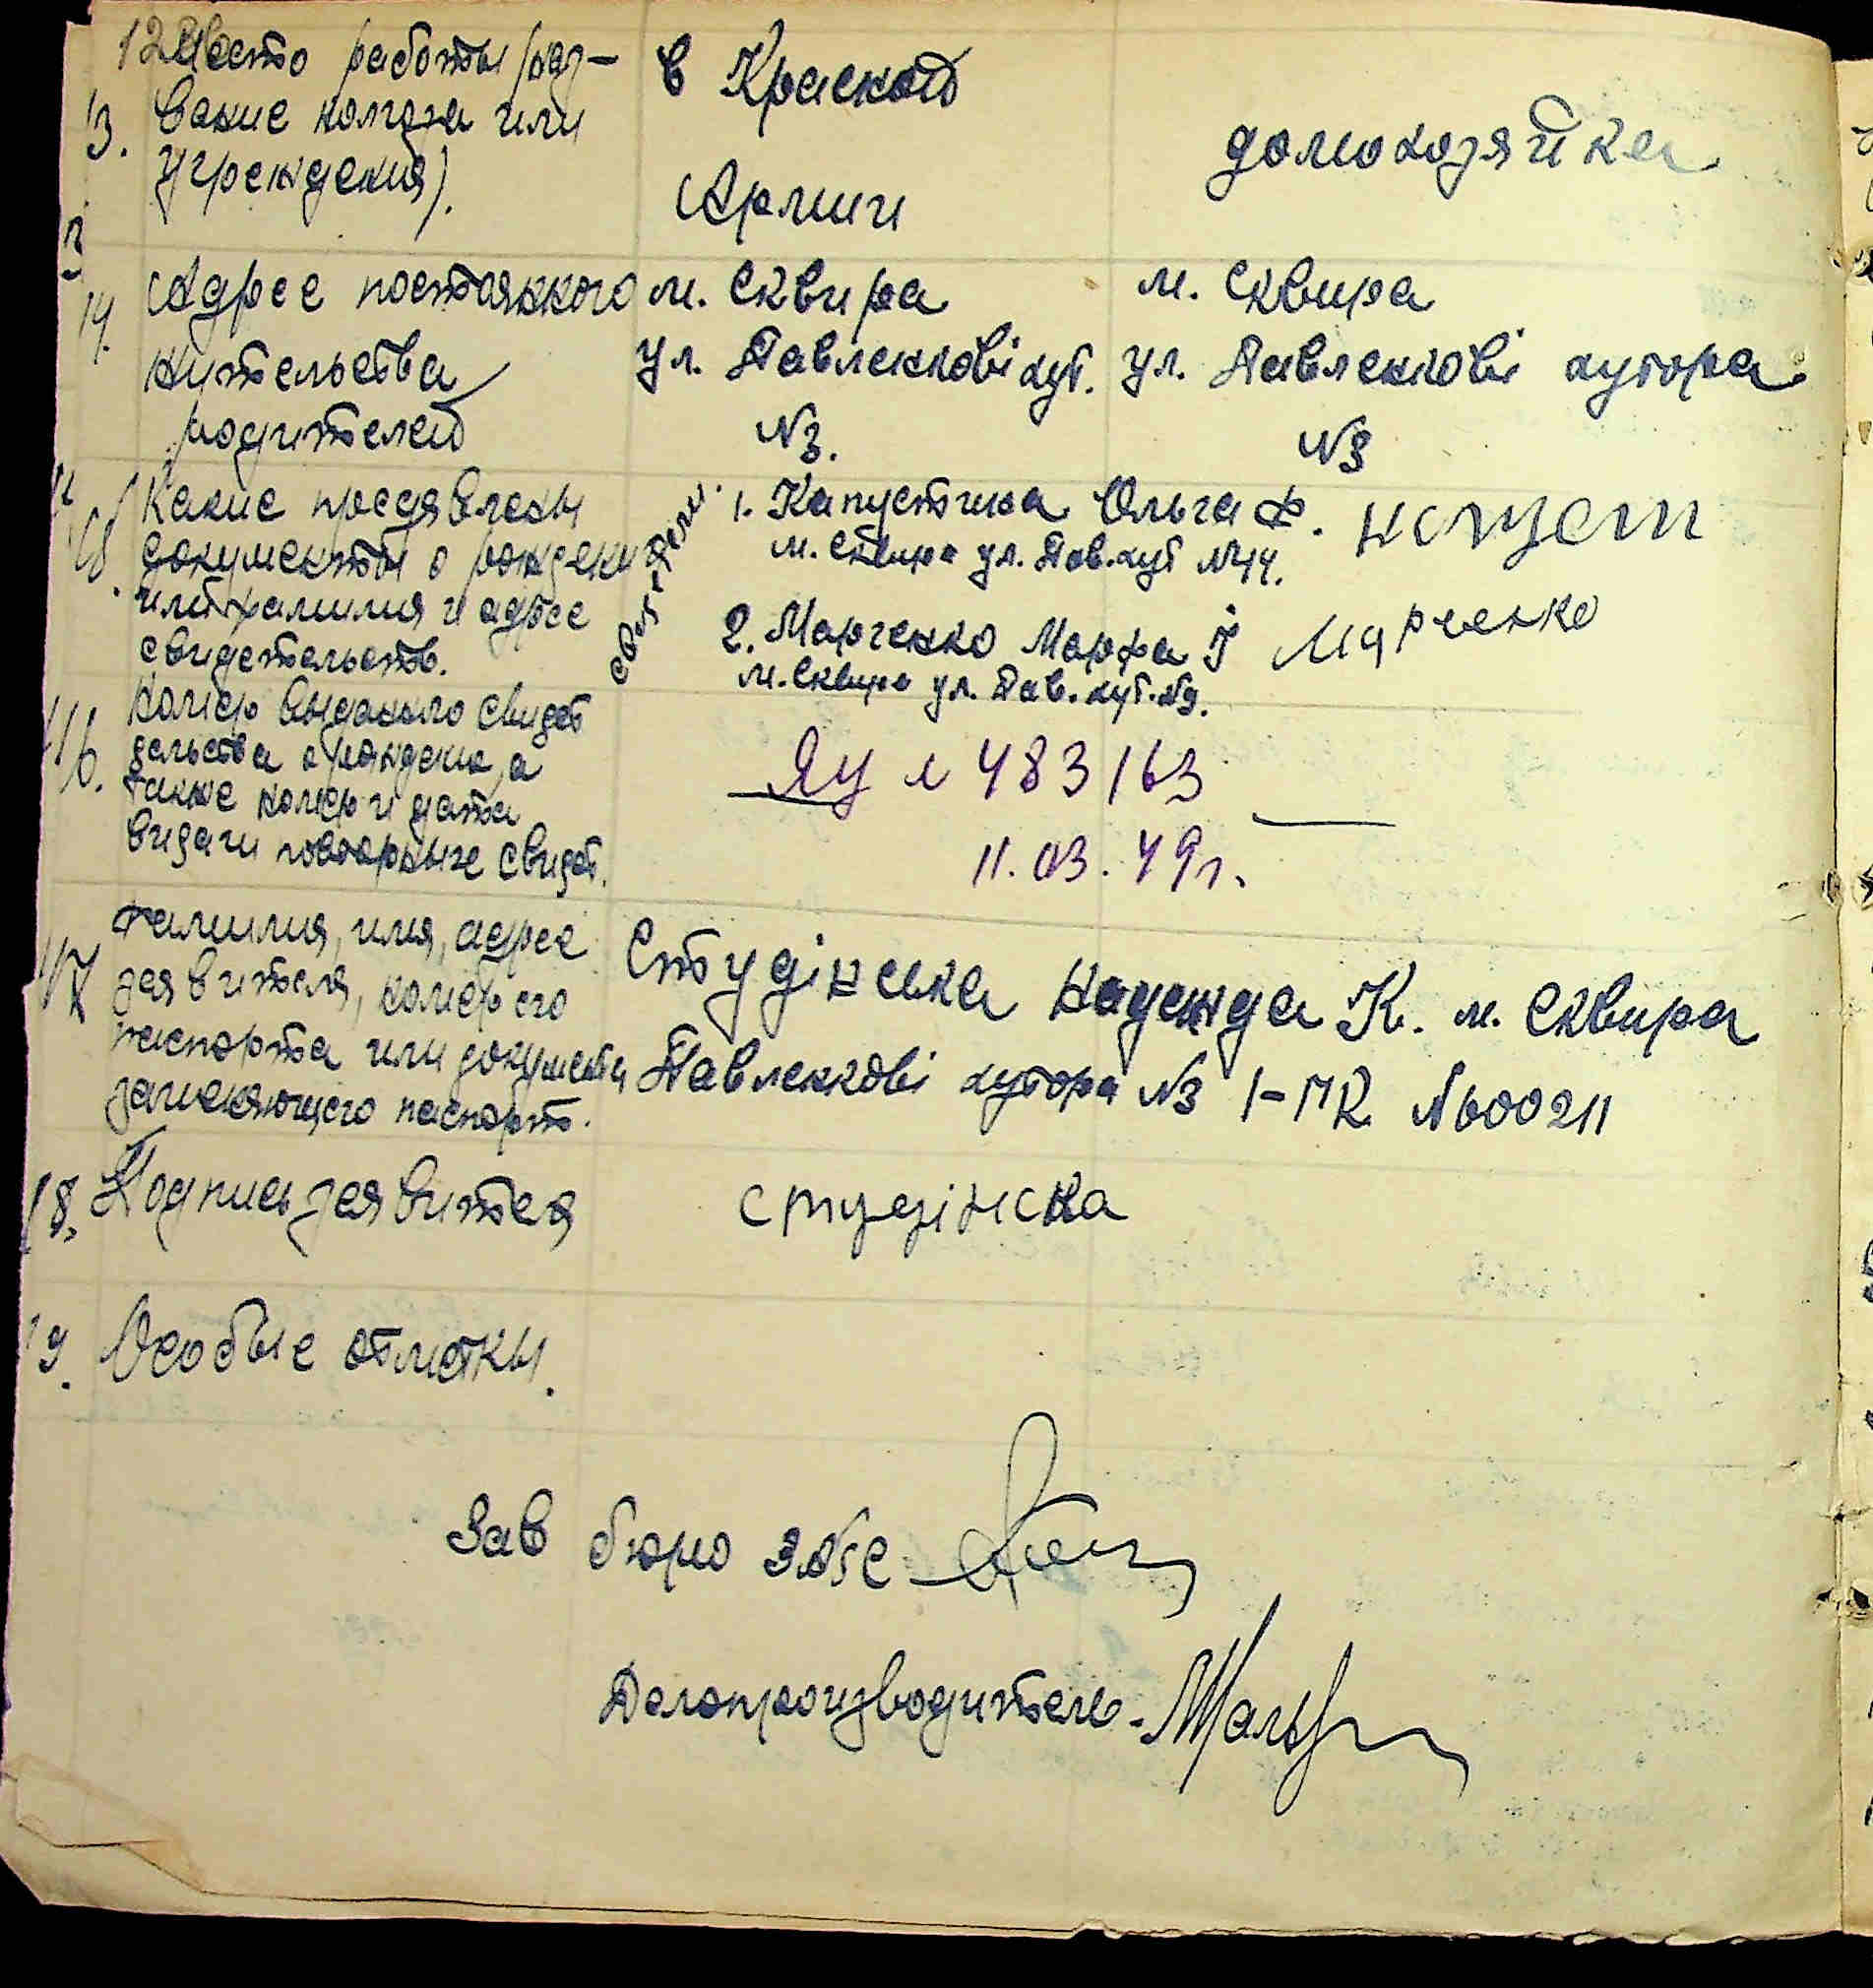 12 Место работы (наз-
13. вание колхоза или
учреждения).
в Красной
Армии
домохозяйка
14. Адрес постоянного
жительства
родителей
м. Сквира
ул. Павленкові хут.
№3.
м. Сквира
ул. Павленкові хутора
№3
15. Какие предявлены
документы о рождении
или фамилия и адрес
свидетельств.
свидетели.
1. Капустина Ольга Ф.
м. Сквира ул. Пав. хут №44.
2. Марченко Марфа І Марченко
м. Сквира ул. Пав. хут. №9.
16. Номер выданого свидет
дельства о рождении, а
также номер и дата
видачи повторные свидет.
ЯУ № 483163
11.03.49г.
17 Фамилия, имя, адрес
заявителя, номер его
паспорта или документа
заменяющего паспорт.
Студінська Надежда К. м. Сквира
Павленкові хутора №3 1-ПК №600211
18. Подпись заявителя
студінска
19. Особые отметкы.
Зав бюро ЗАГС
Делопроизводитель-